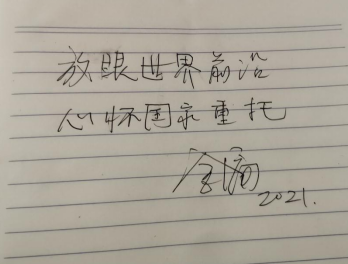 放眼世界前沿
心怀国家重托
2021.